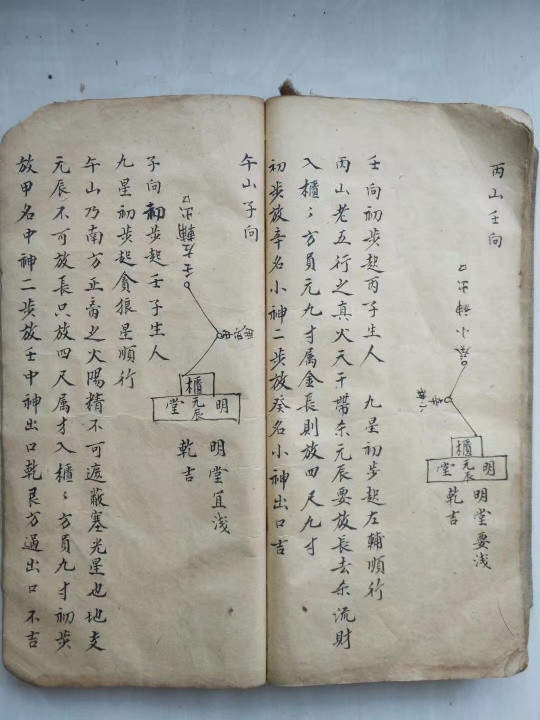 丙山壬向
出口
小神
癸
櫃
元辰
明堂
明堂要浅
乾吉
壬向初步起丙子生人　九星初步起左輔順行
丙山老五行之真火天干帶杀元辰要放長去杀流財
入櫃〻方員元九寸属金長則放四尺九寸
初步放辛名小神二步放癸名小神出口吉
午山子向
出口
左輔
壬
櫃
元辰
明堂
明堂宜浅
乾吉
子向初步起壬子生人
九星初步起貪狼星順行
午山乃南方正□之火陽精不可遮蔽塞光星也地支
元辰不可放長只放四尺属才入櫃〻方員九寸初步
放甲名中神二步放壬中神出口乾艮方過出口不吉